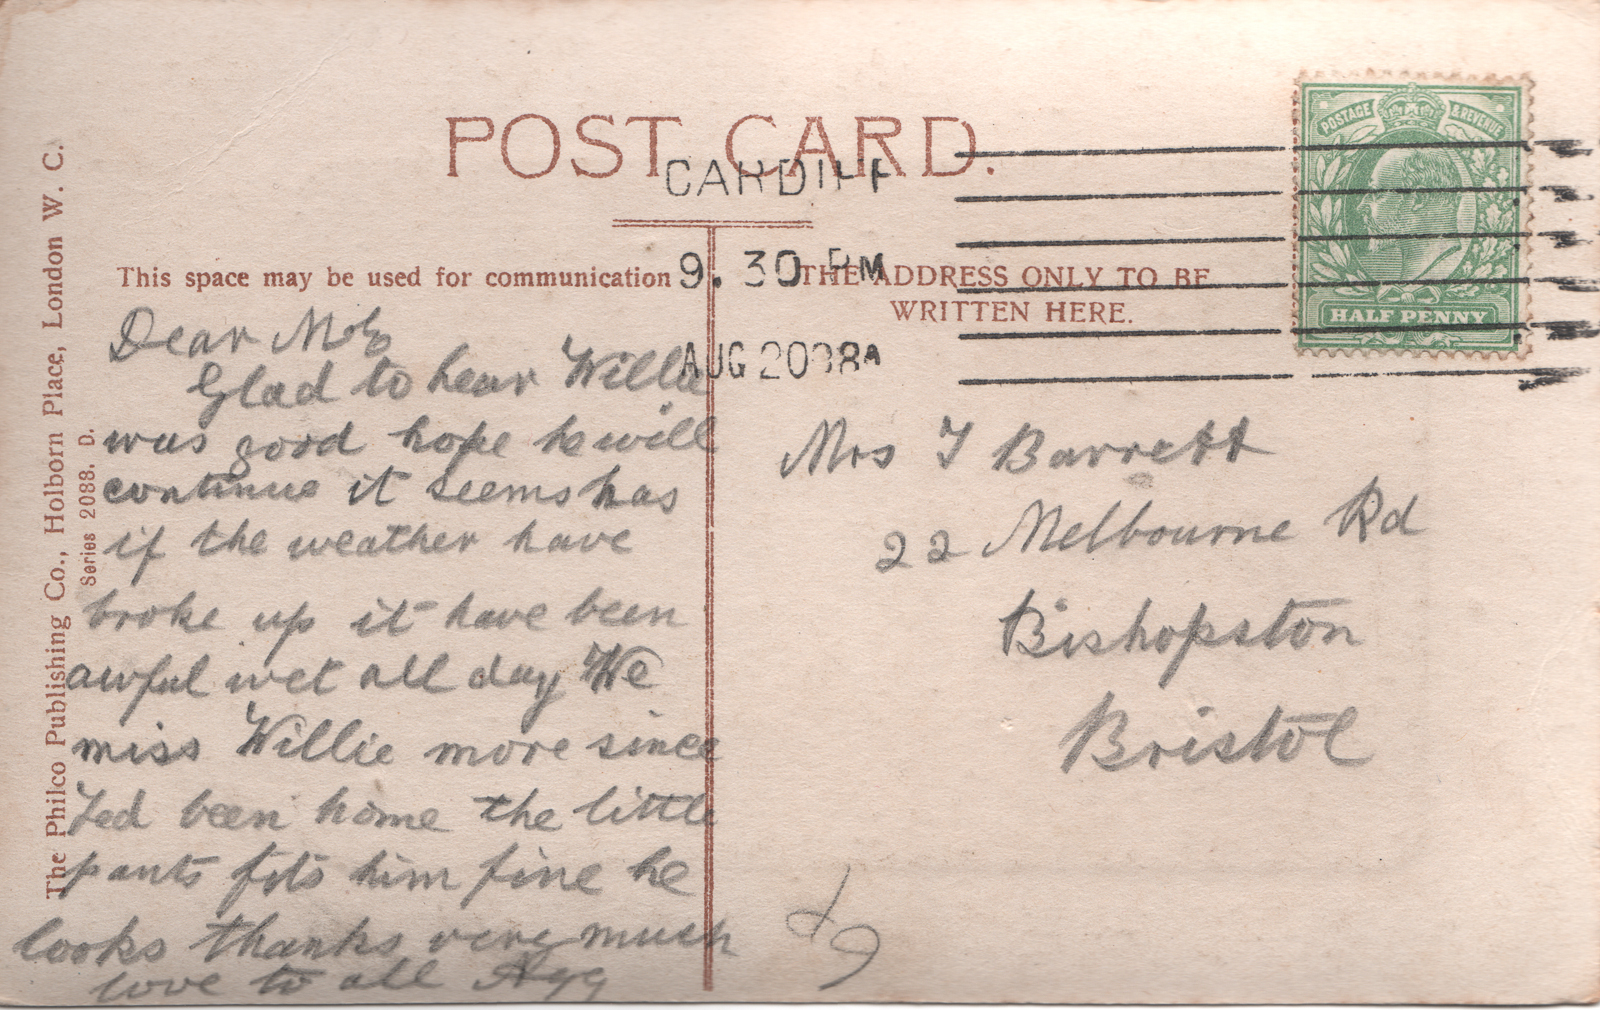 POST CARD.
CARDIFF
9.30 PM
AUG 20 08A
POSTAGE & REVENUE
HALF PENNY
This space may be used for communication
THE ADDRESS ONLY TO BE
WRITTEN HERE.
The Philco Publishing Co., Holborn Place, London W. C.
Series 2088. D.
Dear
Glad to hear Willie
was good hope he will
continue it seems has
if the weather have
broke up it have been
awful wet all day We
miss Willie more since
Ted been home the little
pants fits him fine he
looks thanks very much
love to all Agg
Mrs T Barrett
22 Melbourne Rd
Bishopston
Bristol